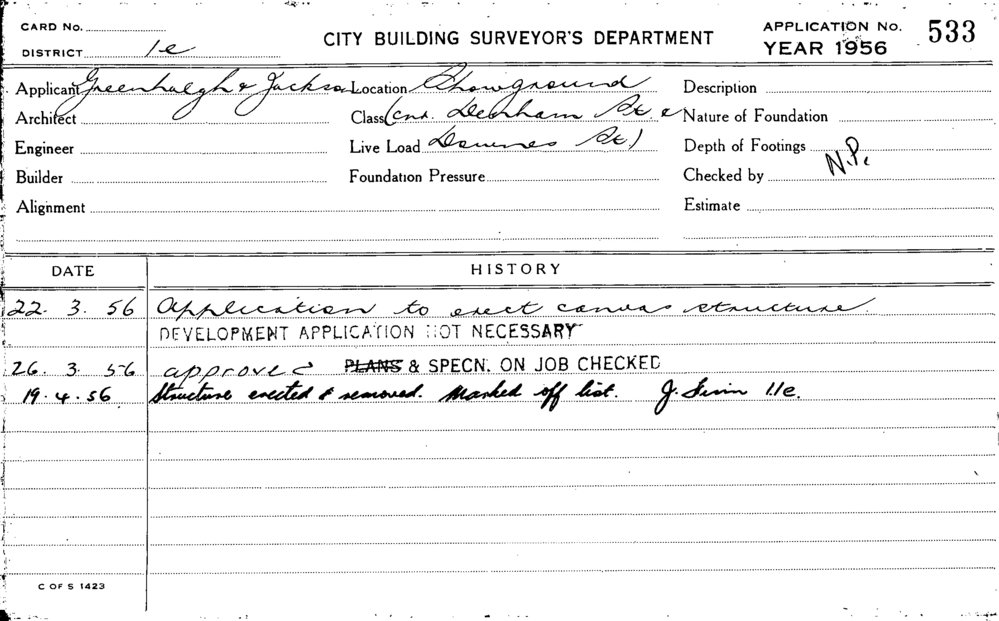 CARD No.
DISTRICT 1e
CITY BUILDING SURVEYOR'S DEPARTMENT
APPLICATION No. 533
YEAR 1956
Applicant Greenhalgh & Jackson Location Showground Description
Architect Class (cnr. Denham St. & Nature of Foundation
Engineer Live Load Downes St.) Depth of Footings
Builder Foundation Pressure Checked by N.P.
Alignment Estimate
DATE HISTORY
22. 3. 56 Application to erect canvas structure.
DEVELOPMENT APPLICATION NOT NECESSARY
26. 3. 56 approved PLANS & SPECN. ON JOB CHECKED
19. 4. 56 Structure erected & removed. Marked off list. J. 1.e.
C OF S 1423